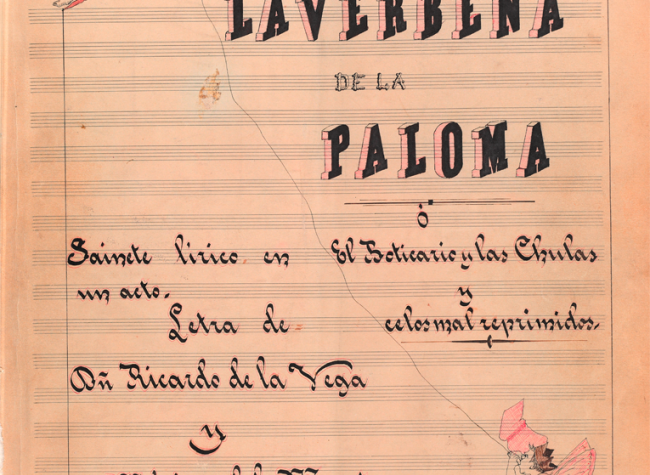 LA VERBENA
DE LA
PALOMA
ó
El Boticario y las Chulas
y
celos mal reprimidos.
Sainete lírico en
un acto.
Letra de
Dn Ricardo de la Vega
y